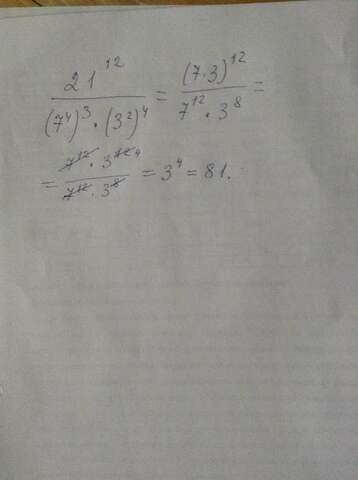 21^12 / ((7^4)^3 · (3^2)^4) = (7·3)^12 / (7^12 · 3^8) =
= 7^12 · 3^12 4 / (7^12 · 3^8) = 3^4 = 81.